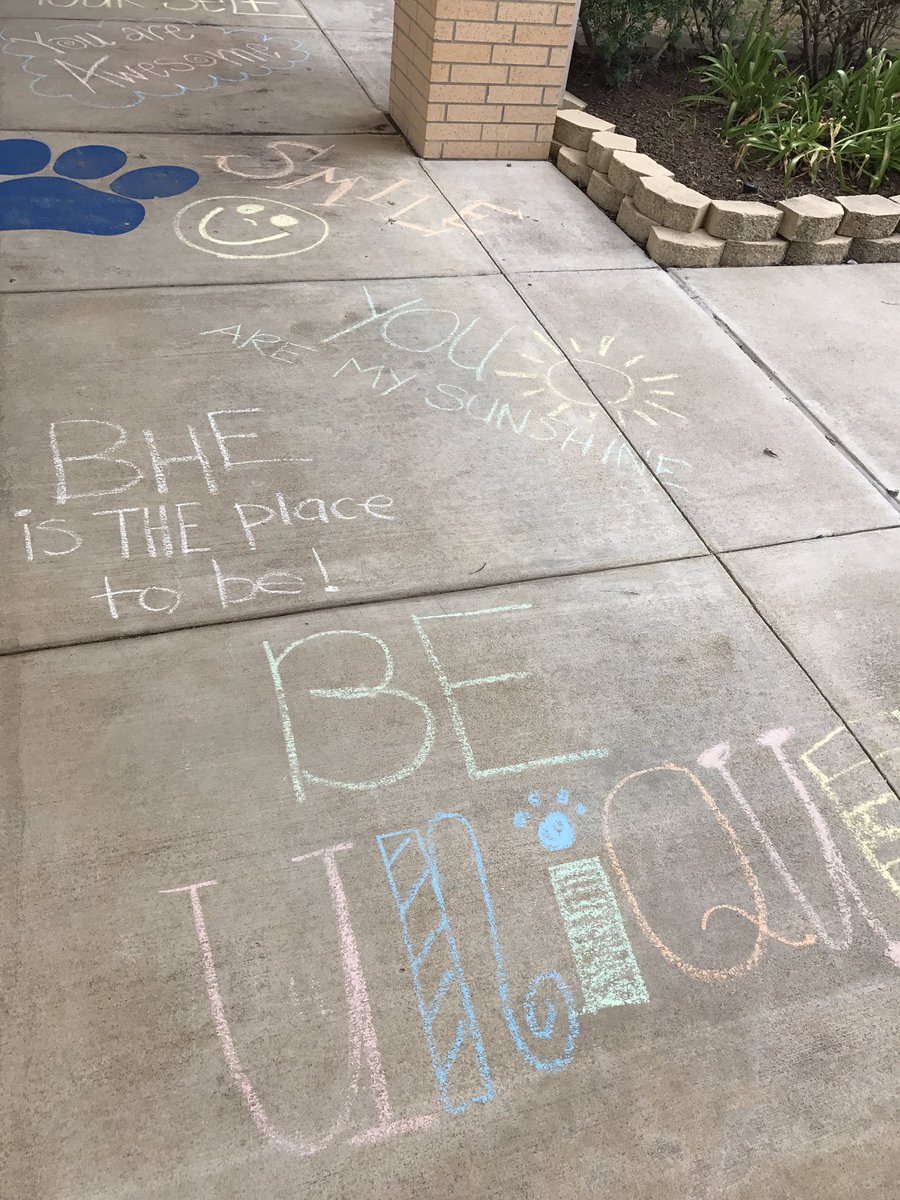 YOUR SELF
You are
Awesome
SMILE
YOU
ARE MY SUNSHINE
BHE
is THE place
to be!
BE
UNiQUE